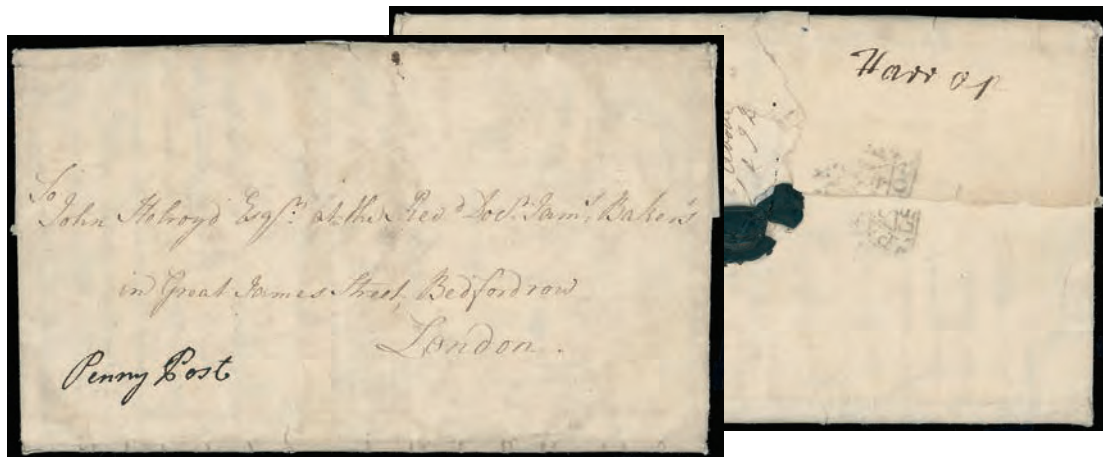 To
John Holroyd Esqr. at the Revd. Docr. Jams. Baker's
in Great James Street, Bedfordrow
London.
Penny Post
Harrop